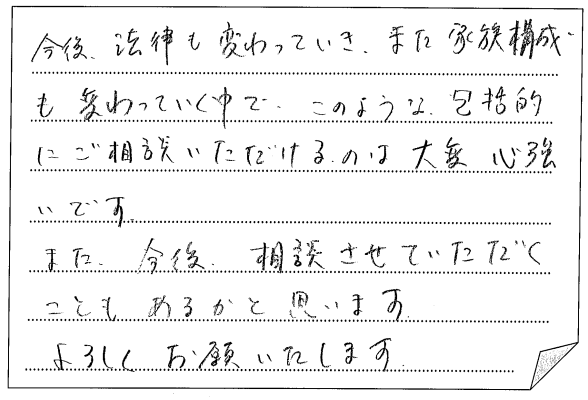 今後、法律も変わっていき、また家族構成
も変わっていく中で、このような、包括的
にご相談いただけるのは大変心強
いです。
また、今後、相談させていただく
こともあるかと思います。
よろしくお願いいたします。